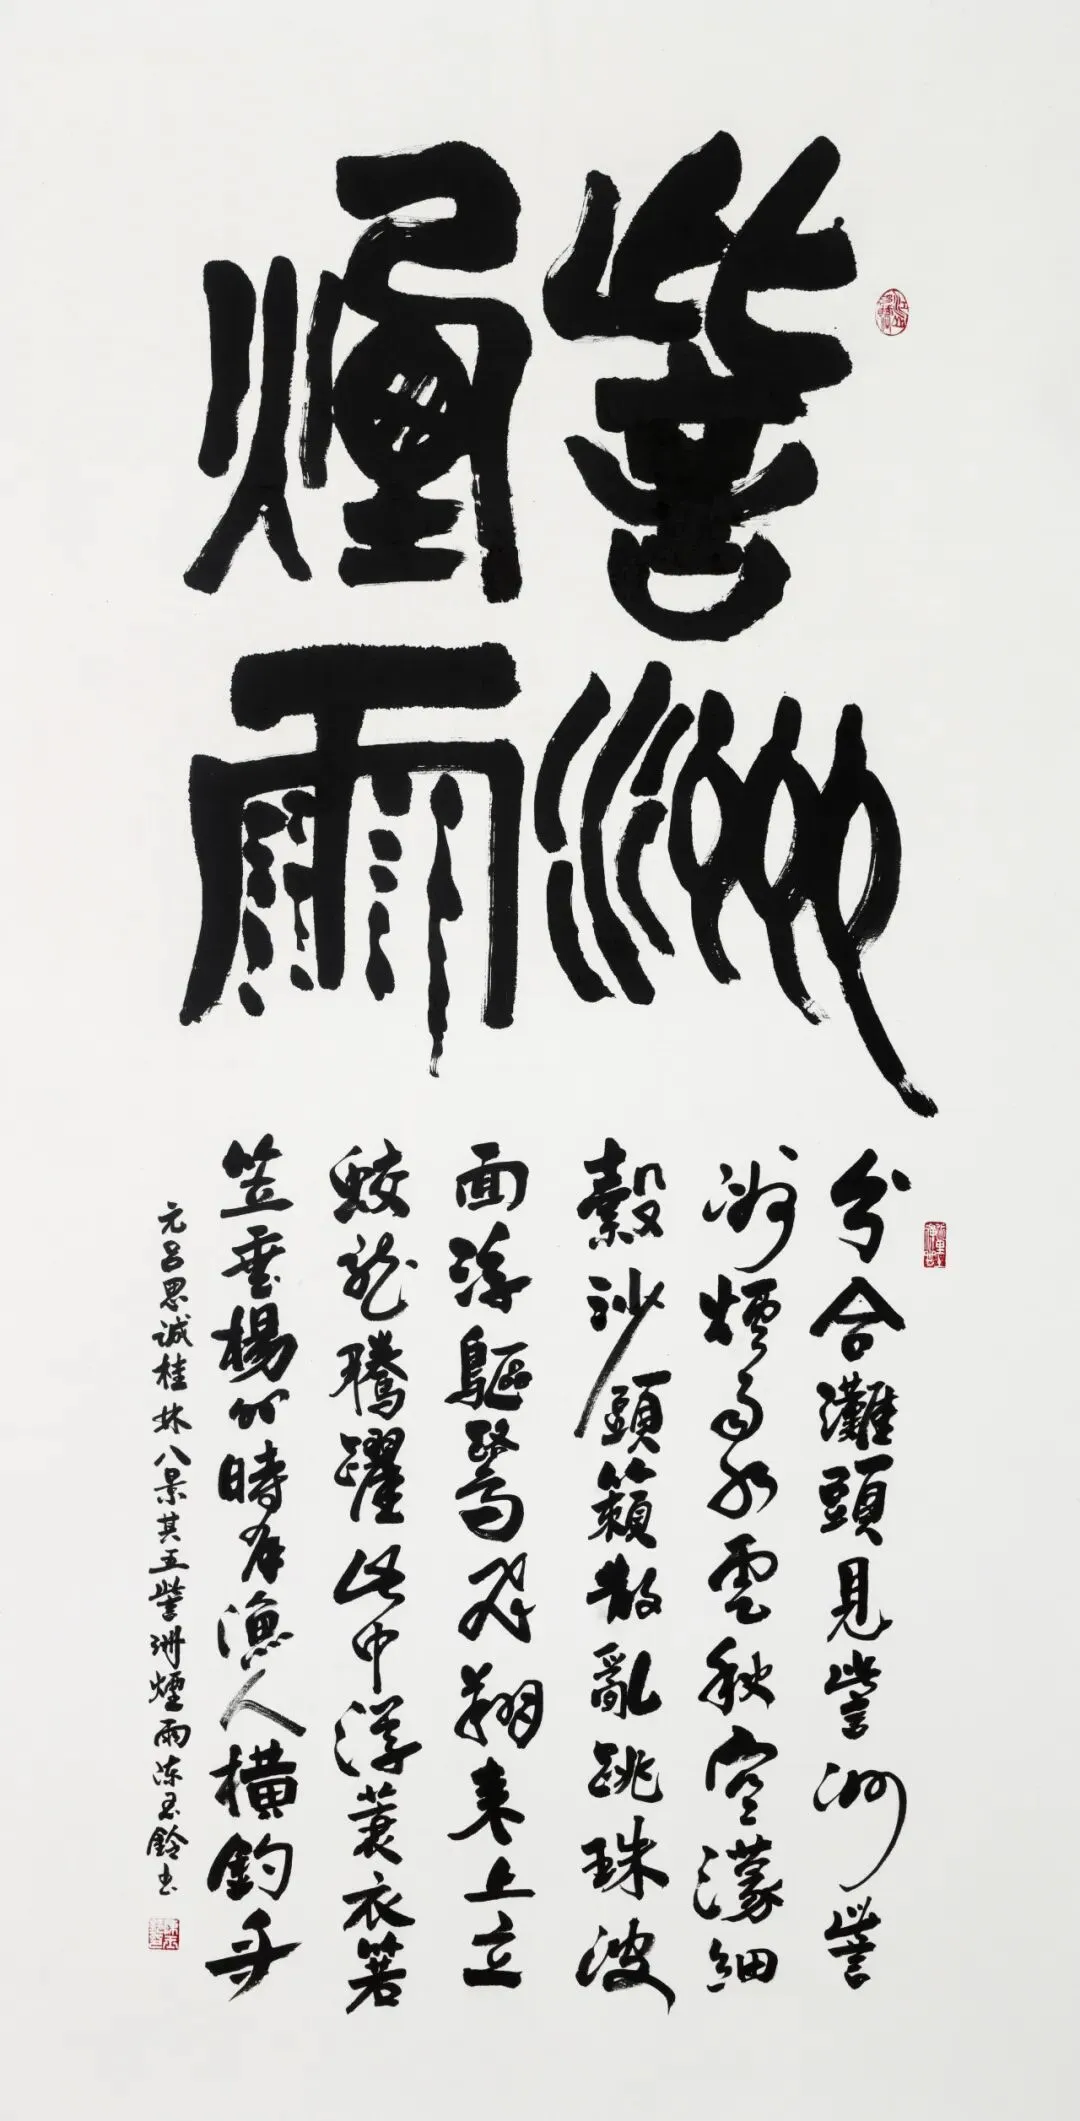 訾洲
煙雨
分合灘頭見訾洲訾
洲煙雨水雲秋空濛細
縠沙頭籟散亂跳珠波
面浮鷗鷺飛翔來上立
蛟龍騰躍此中游蓑衣箬
笠垂楊外時有漁人橫釣舟
元呂思誠桂林八景其五訾洲煙雨陳玉鈴書